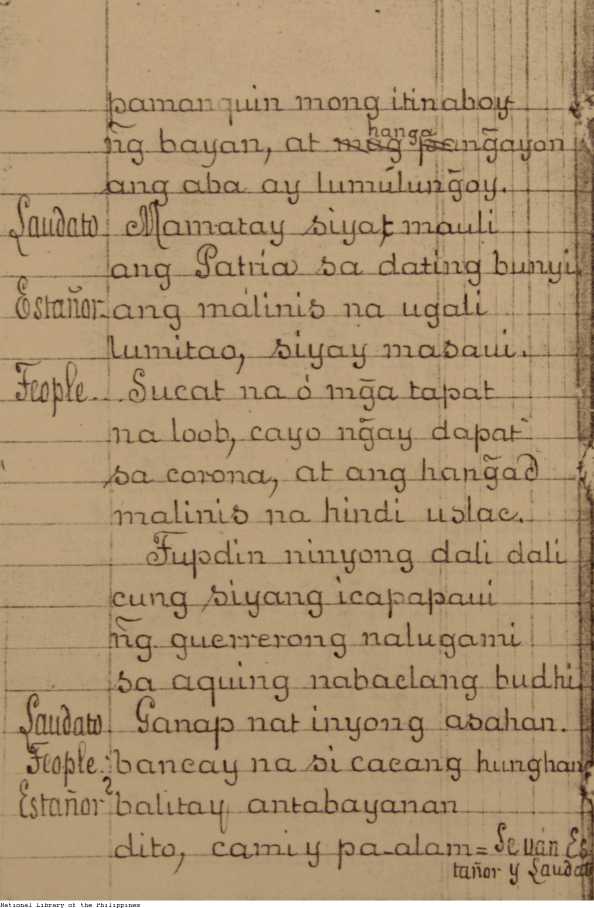 pamanquin mong itinaboy
n͠g bayan, at hanga pang̃ayon
ang aba ay lumúlung̃oy.
Laudato Mamatay siyat, mauli
ang Patria sa dating bunyi,
Estañor. ang malinis na ugali
lumitao, siyay masaui.
Feople... Sucat na ó mg̃a tapat
na loob, cayo ng̃ay dapat
sa corona, at ang hang̃ad
malinis na hindi uslac.
Fupdin ninyong dali dali
cung siyang icapapaui
n͠g guerrerong nalugami
sa aquing nabaclang budhi.
Laudato. Ganap nat inyong asahan.
Feople. bangcay na si cacang hunghang
Estañor balitay antabayanan
dito, cami y pa-alam = Se ván Es
tañor y Laudato
National Library of the Philippines